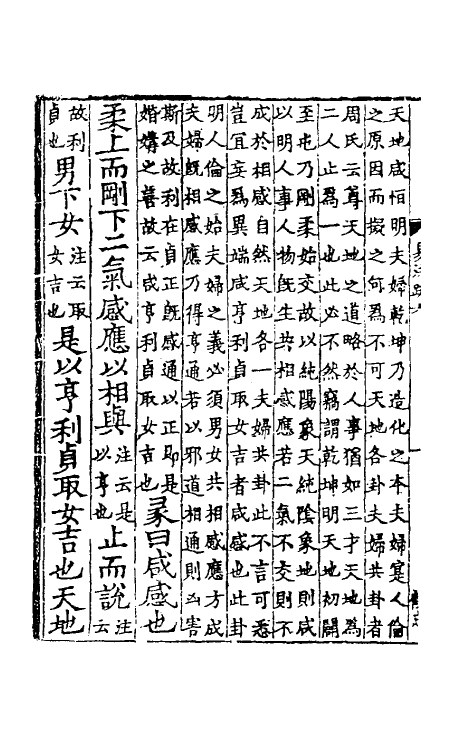 天地咸恒明夫婦乾坤乃造化之本夫婦寔人倫
之原因而擬之何爲不可天地各卦夫婦共卦者
周氏云尊天地之道略於人事猶如三才天地爲
二人止爲一也此必不然竊謂乾坤明天地初闢
至屯乃剛柔始交故以純陽象天純陰象地則咸
以明人事人物旣生共相感應若二氣不交則不
成於相感自然天地各一夫婦共卦此不言可悉
豈宜妄爲異端咸亨利貞取女吉者咸感也此卦
明人倫之始夫婦之義必須男女共相感應方成
夫婦旣相感應乃得亨通若以邪道相通則凶害
斯及故利在貞正旣感通以正即是
婚媾之善故云咸亨利貞取女吉也
彖曰咸感也
柔上而剛下二氣感應以相與注云是以亨也止而說注云
故利貞也男下女注云取女吉也是以亨利貞取女吉也天地